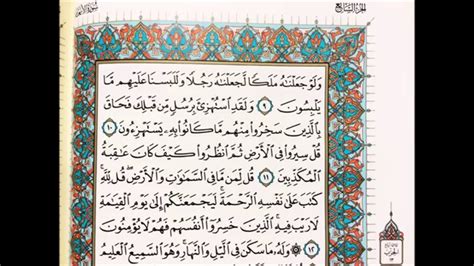 سورة الأنعام
الجزء السابع
وَلَوْ جَعَلْنَٰهُ مَلَكًا لَّجَعَلْنَٰهُ رَجُلًا وَلَلَبَسْنَا عَلَيْهِم مَّا
يَلْبِسُونَ ٩ وَلَقَدِ ٱسْتُهْزِئَ بِرُسُلٍ مِّن قَبْلِكَ فَحَاقَ
بِٱلَّذِينَ سَخِرُوا۟ مِنْهُم مَّا كَانُوا۟ بِهِۦ يَسْتَهْزِءُونَ ١٠
قُلْ سِيرُوا۟ فِى ٱلْأَرْضِ ثُمَّ ٱنظُرُوا۟ كَيْفَ كَانَ عَٰقِبَةُ
ٱلْمُكَذِّبِينَ ١١ قُل لِّمَن مَّا فِى ٱلسَّمَٰوَٰتِ وَٱلْأَرْضِ قُل لِّلَّهِ
كَتَبَ عَلَىٰ نَفْسِهِ ٱلرَّحْمَةَ لَيَجْمَعَنَّكُمْ إِلَىٰ يَوْمِ ٱلْقِيَٰمَةِ
لَا رَيْبَ فِيهِ ٱلَّذِينَ خَسِرُوٓا۟ أَنفُسَهُمْ فَهُمْ لَا يُؤْمِنُونَ
١٢ وَلَهُۥ مَا سَكَنَ فِى ٱلَّيْلِ وَٱلنَّهَارِ وَهُوَ ٱلسَّمِيعُ ٱلْعَلِيمُ